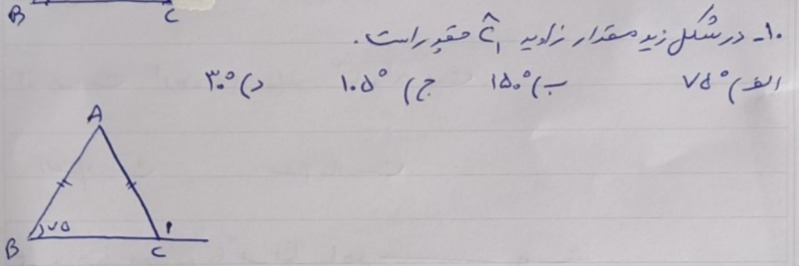 B C
۱۰- در شکل زیر مقدار زاویه Ĉ₁ چقدر است.
الف) ۷۵° ب) ۱۵۰° ج) ۱۰۵° د) ۳۰°
A
۷۵ ۱
B C